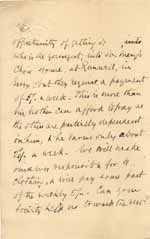 opportunity of getting H
who is the youngest, into Dr.
Home, at
but they require a payment
of 5/- a week. This is more than
his mother can afford to pay as
the others are partially dependent
on him, & he earns only about
a week. We will make
ourselves responsible for H.
clothing & will pay some part
of the weekly 5/-. Can your
Society help us towards the rest?